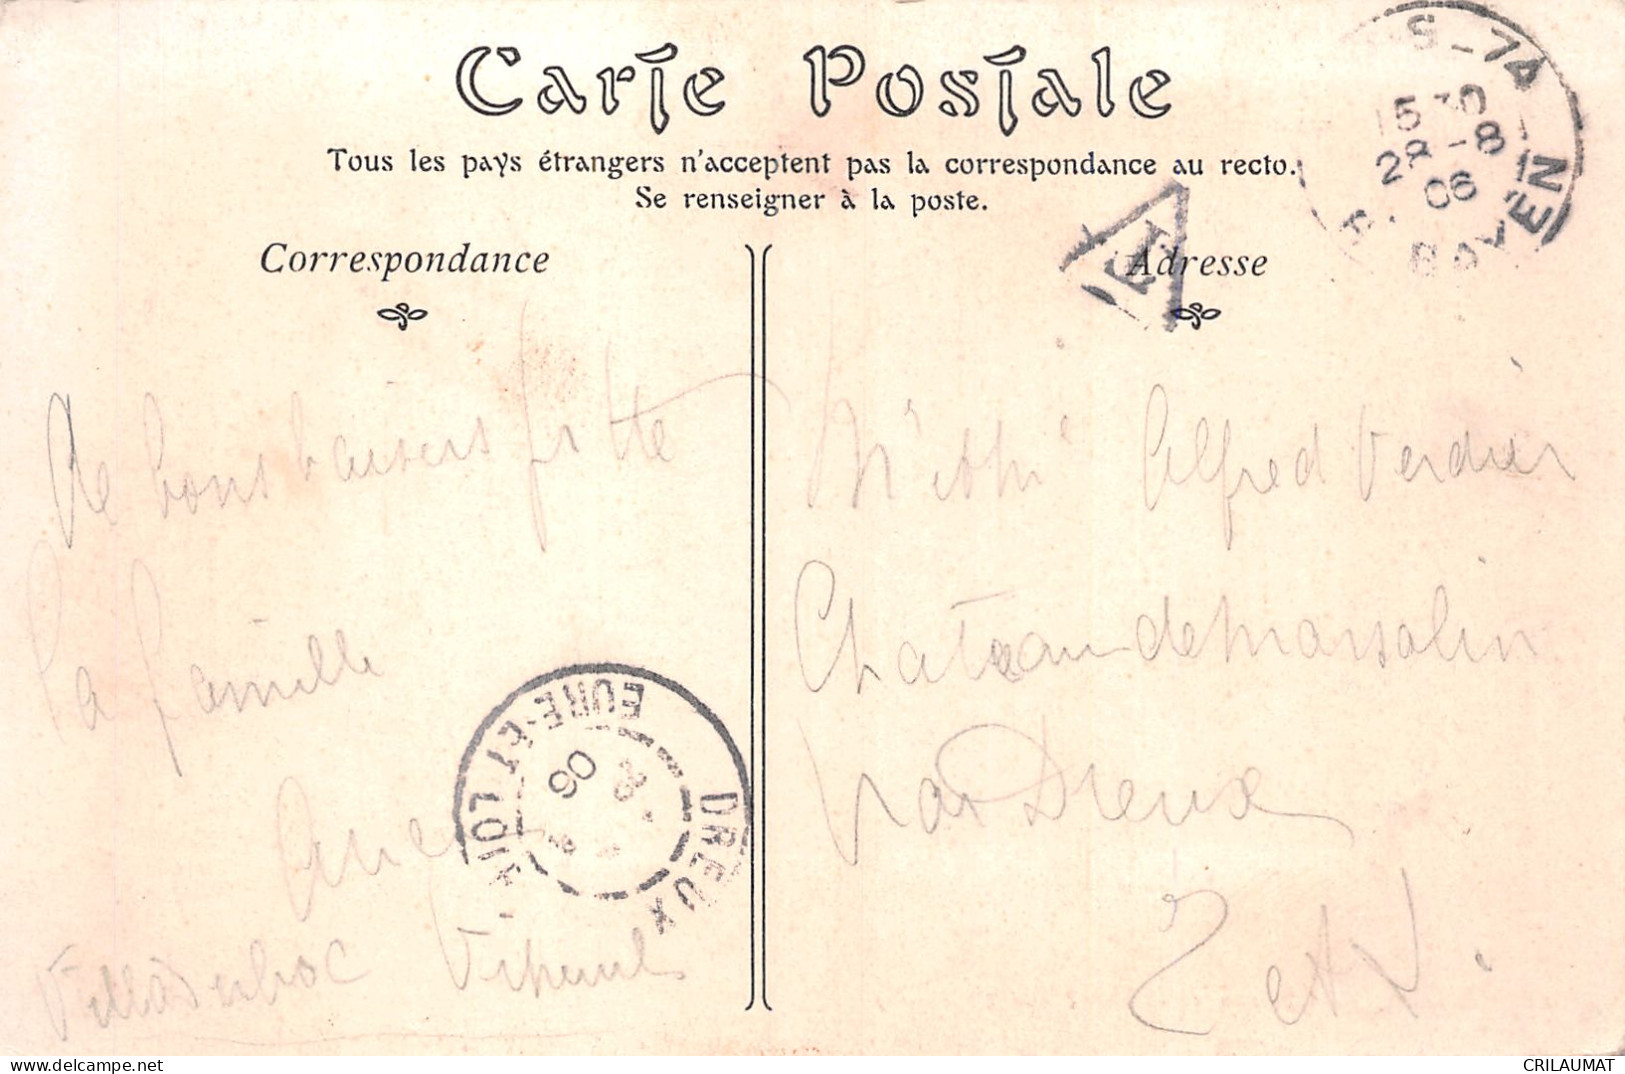 Carte Postale
Tous les pays étrangers n'acceptent pas la correspondance au recto.
Se renseigner à la poste.
Correspondance
Adresse
S-74
15 30
28-8
06
R. BAYEN
T
De bons baisers pr tte
la famille
Villa
Mr et Me Alfred Verdier
Chateau de Marsalin
par Dreux
E et L.
DREUX
EURE-ET-LOIR
06
CRILAUMAT